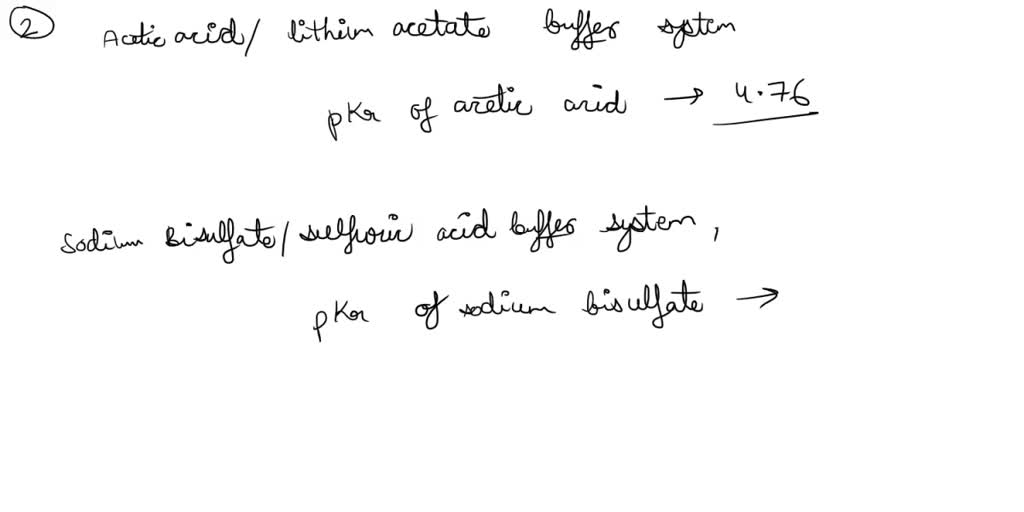 ② Acetic acid/ lithium acetate buffer system
pKa of acetic acid → 4.76
Sodium Bisulfate/ sulfuric acid buffer system,
pKa of sodium bisulfate →